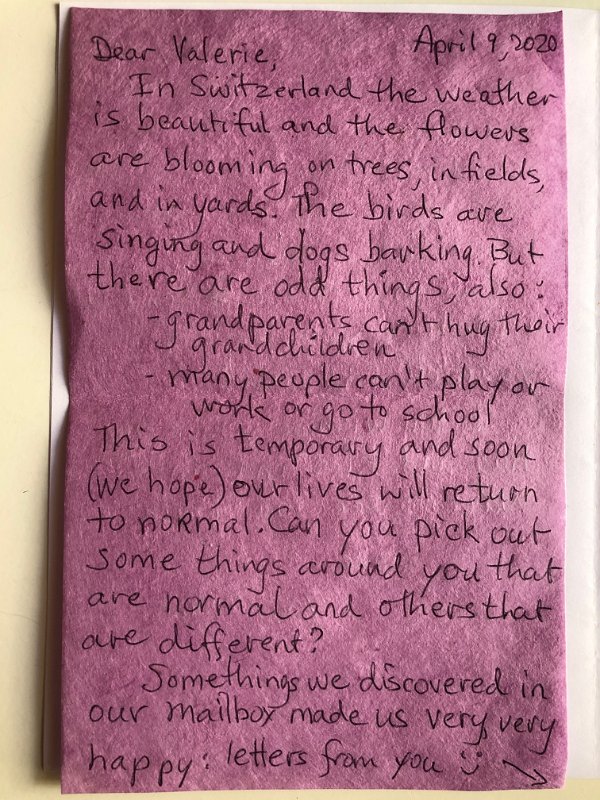 Dear Valerie, April 9, 2020
In Switzerland the weather
is beautiful and the flowers
are blooming on trees, in fields,
and in yards. The birds are
singing and dogs barking. But
there are odd things, also:
- grandparents can't hug their
grandchildren
- many people can't play or
work or go to school
This is temporary and soon
(we hope) our lives will return
to normal. Can you pick out
some things around you that
are normal and others that
are different?
Somethings we discovered in
our mailbox made us very, very
happy: letters from you